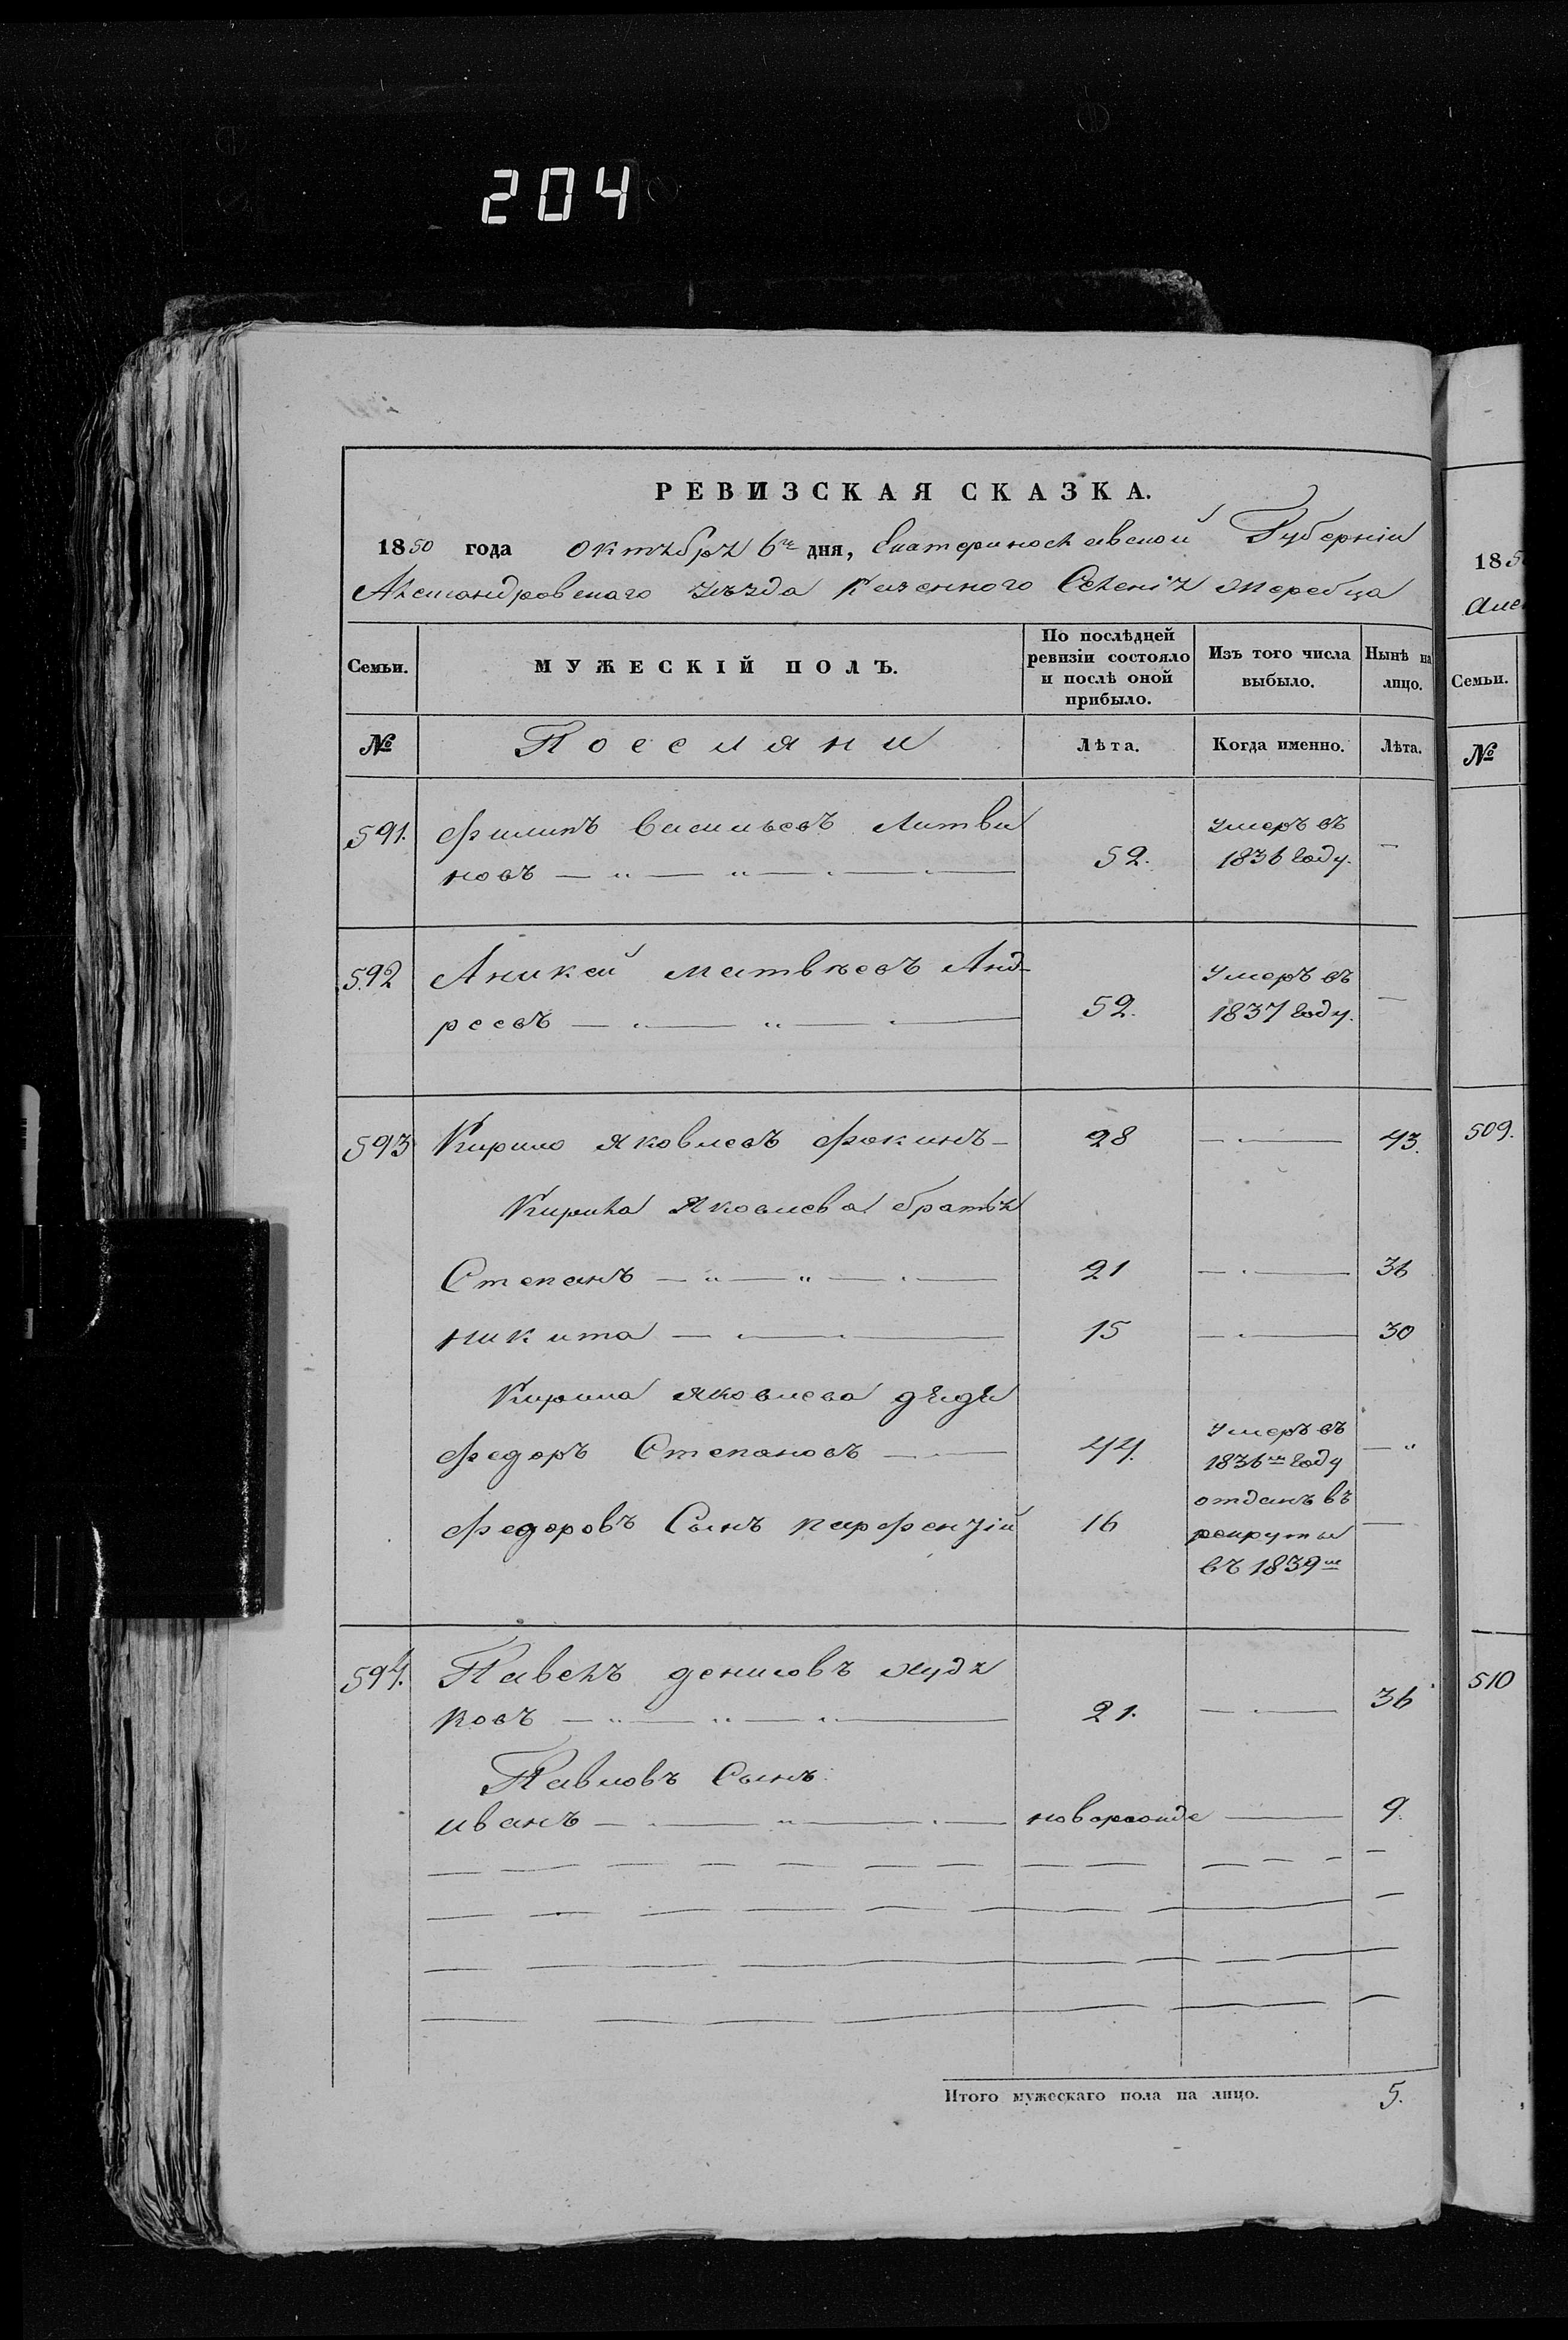 204
РЕВИЗСКАЯ СКАЗКА.
1850 года октября 6го дня, Екатеринославской Губерніи
Александровскаго уѣзда Казенного Селенія Жеребца
Семьи.
МУЖЕСКІЙ ПОЛЪ.
По послѣдней ревизіи состояло и послѣ оной прибыло.
Изъ того числа выбыло.
Нынѣ на лицо.
№
Поселяни
Лѣта.
Когда именно.
Лѣта.
591. Филипъ Васильевъ Литви
новъ 52. Умеръ въ 1836 году. —
592 Аникей Матвѣевъ Анд-
реевъ 52. Умеръ въ 1837 году. —
593 Кирило Яковлевъ Фокинъ — 28 — 43.
Кирила Яковлева братья
Степанъ 21 — 36
Никита 15 — 30
Кирила Яковлева дядя
Федоръ Степановъ 44. Умеръ въ 1836м году —
Федоровъ Сынъ Парфентій 16 отданъ въ рекруты въ 1839м —
594. Павелъ Денисовъ Худя
ковъ 21. — 36
Павловъ Сынъ
Иванъ новорожде — 9.
Итого мужескаго пола на лицо. 5.
185
Алек
Семьи.
№
509.
510